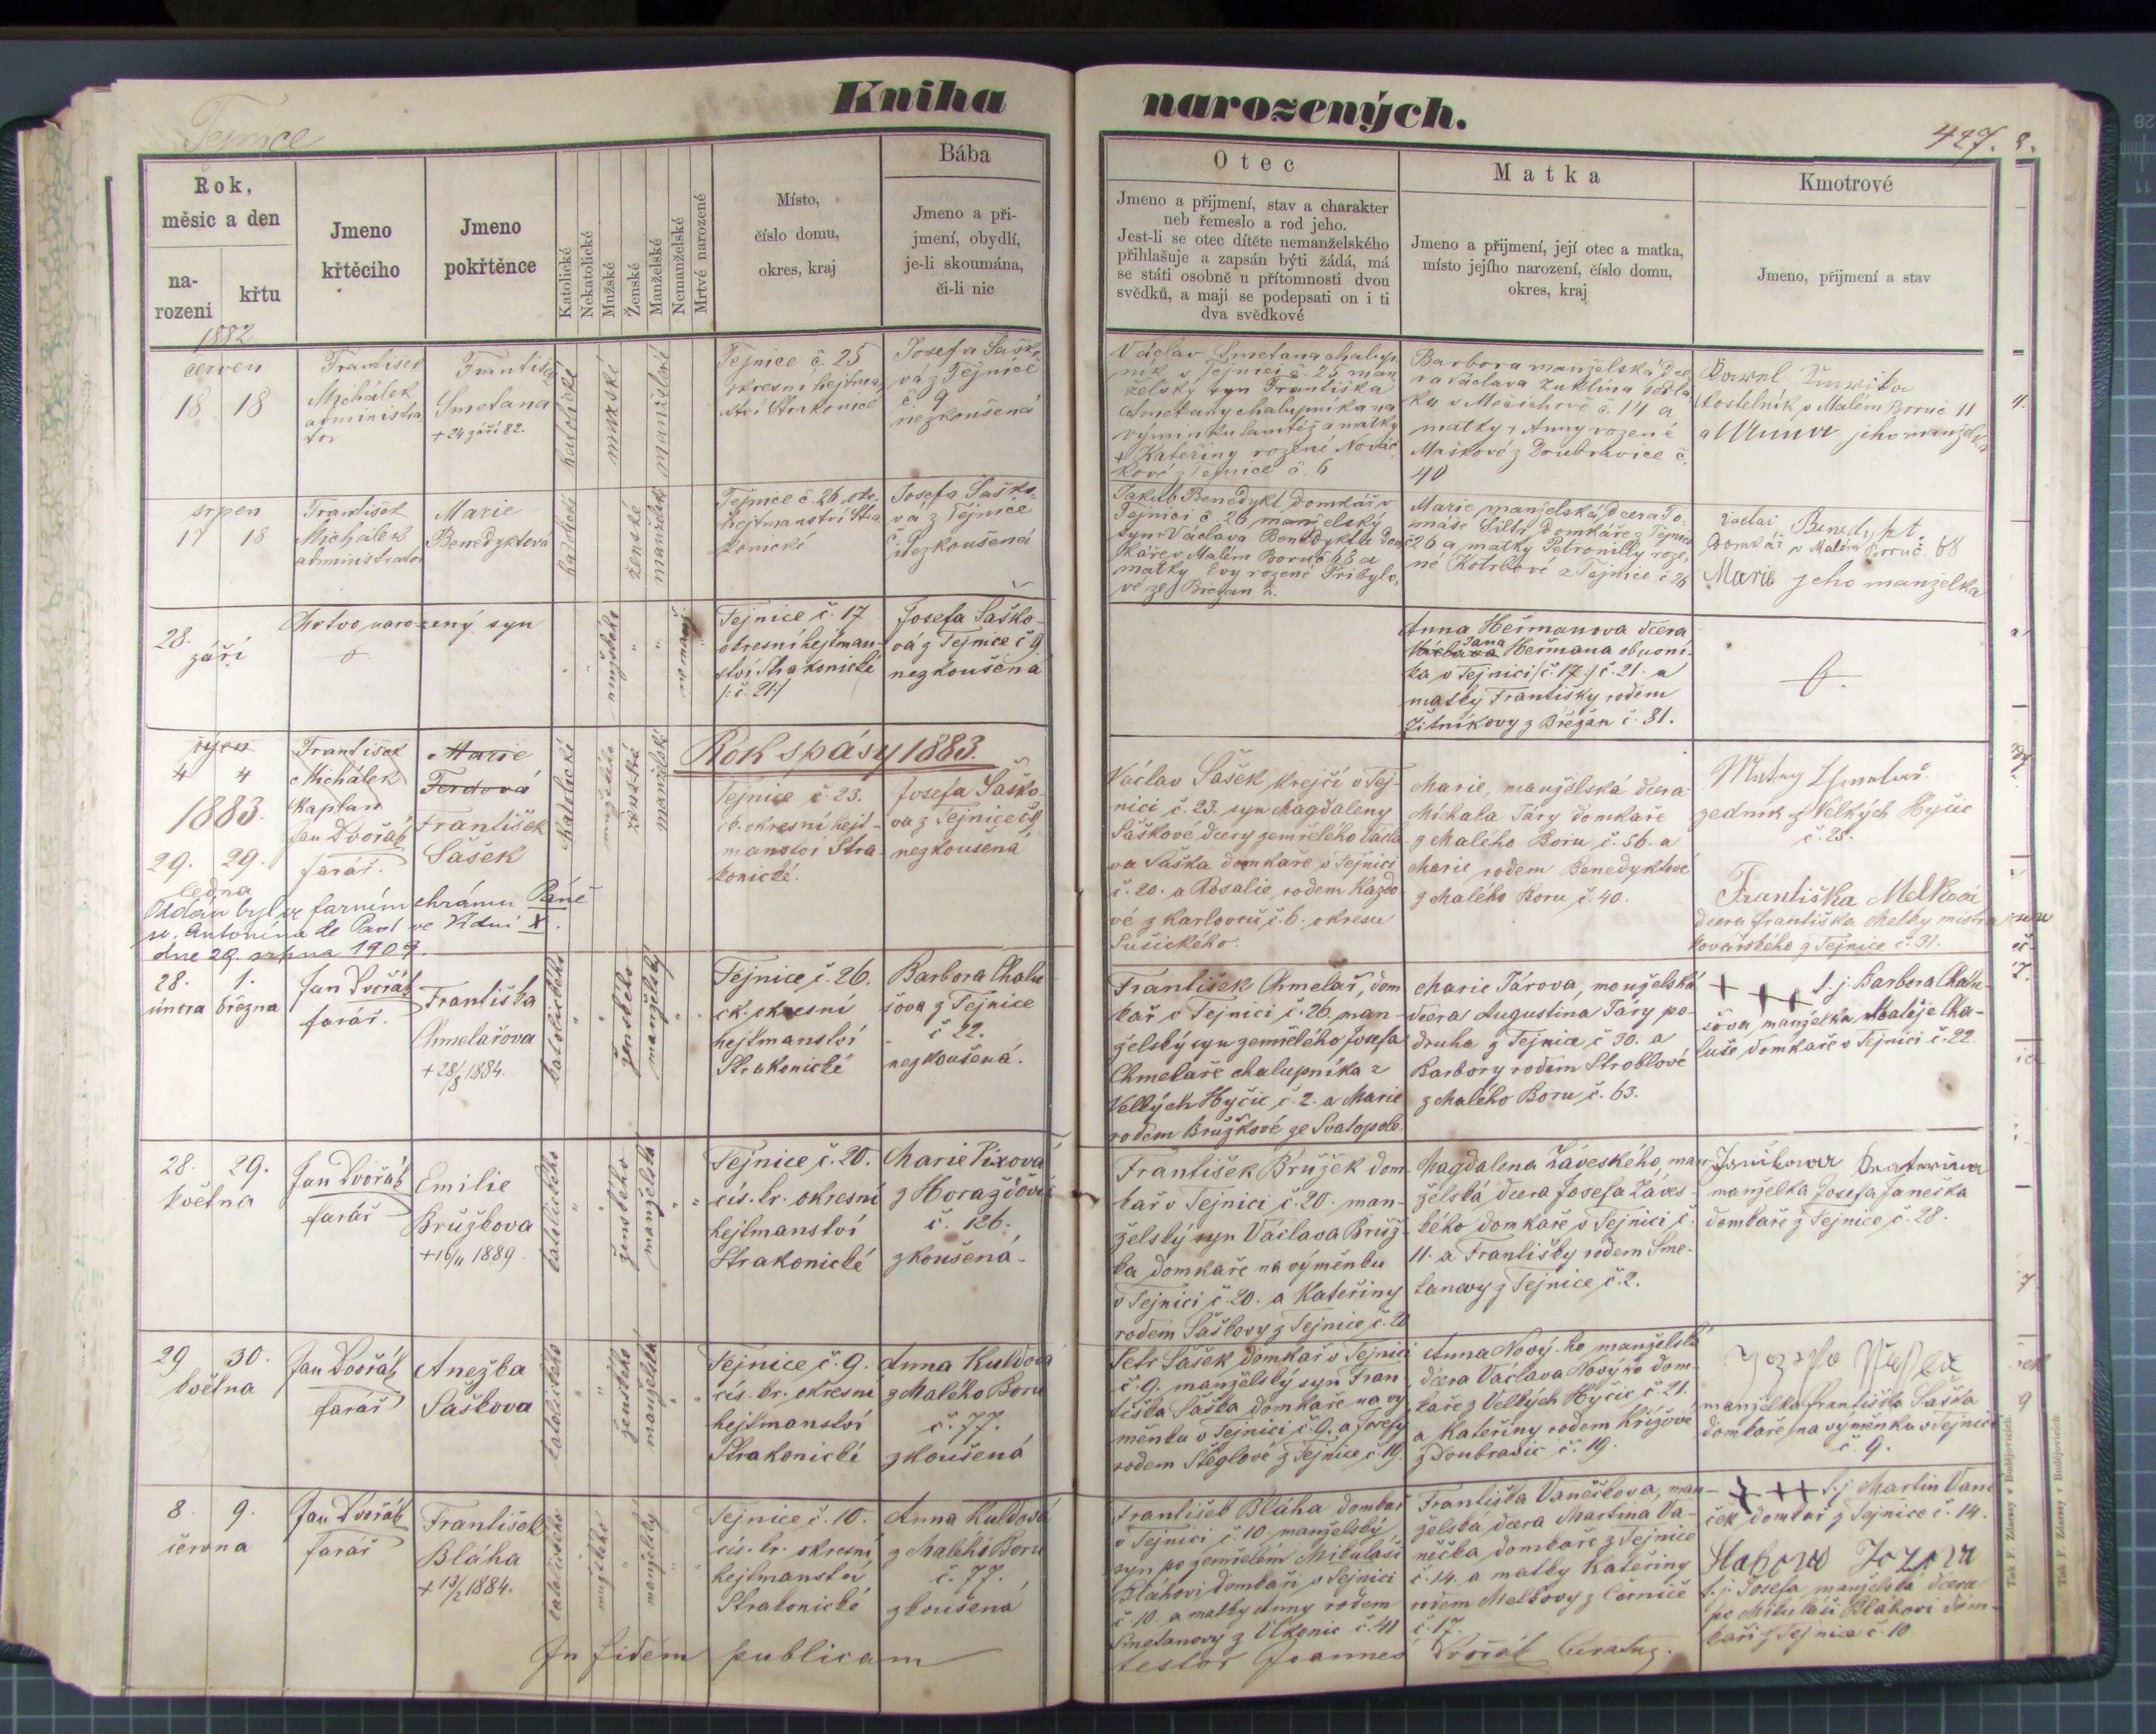 Kniha narozených.
Tejnice
427.
Rok,
měsíc a den
na-
rození
křtu
Jmeno
křtěcího
Jmeno
pokřtěnce
Katolické
Nekatolické
Mužské
Ženské
Manželské
Nemanželské
Mrtvé narozené
Místo,
číslo domu,
okres, kraj
Bába
Jmeno a při-
jmení, obydlí,
je-li skoumána,
či-li nic
Otec
Jmeno a přijmení, stav a charakter
neb řemeslo a rod jeho.
Jest-li se otec dítěte nemanželského
přihlašuje a zapsán býti žádá, má
se státi osobně u přítomnosti dvou
svědků, a mají se podepsati on i ti
dva svědkové
Matka
Jmeno a přijmení, její otec a matka,
místo jejího narození, číslo domu,
okres, kraj
Kmotrové
Jmeno, přijmení a stav
1882
červen
18 18
František
Michálek
administra
tor
Smetana
+ 24 září 82.
katolické
mužské
manželské
Tejnice č. 25
okresní hejtma
ství Strakonice
Josefa Šaško
vá z Tejnice
č 9
nezkoušená
Václav Smetana chalup
ník v Tejnici č. 25 man
želský syn Františka
Smetany chalupníka na
výminku tamtéž a matky
Kateřiny rození Nováč
kové z Tejnice č. 6
Barbora manželská dce
ra Václava
ka v č. 14 a
matky Anny rozené
Maškové z Doubravice č.
40
Pavel
kostelník v Malém Boru č 11
a Anna jeho manželka
srpen
17 18
František
Michálek
administrator
Marie
Benedyktová
katolické
ženské
manželské
Tejnice č. 26 okr.
hejtmanství Stra
konické
Josefa Šaško
vá z Tejnice
č. 9
nezkoušená
Jakub Benedykt domkář v
Tejnici č 26 manželský
syn Václava Benedykta dom
káře v Malém Boru č 68 a
matky Evy rozené Přibylo
vé ze Břežan 2.
Marie manželská dcera To
máše domkáře z Tejnice
č 26 a matky Petronilly roze
né Kotrbové z Tejnice č 26
Václav Benedykt
Domkář v Malém Boru č. 68
Marie jeho manželka
28.
září
Mrtvo narozený syn
mužského
nemanž.
Tejnice č. 17
okresní hejtman-
ství Strakonické
/: č. 21:/
Josefa Saško-
vá z Tejnice č 9
nezkoušená
Anna Heřmanova dcera
Václava Jana Heřmana obuvní
ka v Tejnici /č. 17:/ č. 21. a
matky Františky rodem
Žitníkovy z Břežan č. 81.
říjen
4 4
František
Michálek
Kaplan
Marie
Ferdová
Rok spásy 1883.
1883.
29. 29.
ledna
Jan Dvořák
farář.
František
Sášek
Katolické
ženské
manželské
Tejnice č. 23.
c. okresní hejt-
manství Stra-
konické.
Josefa Saško-
va z Tejnice č 9
nezkoušená
Václav Sašek krejčí v Tej-
nici č. 23. syn Magdaleny
Saškové dcery zemřelého Václa
va Saška domkaře v Tejnici
č. 20. a Rosalie rodem Kazdo
vé z Karlovců č. 6. okresu
Sušického.
Marie, manželská dcera
Michala Táry domkaře
z Malého Boru č. 56. a
Marie rodem Benedyktové
z Malého Boru č. 40.
zedník z Velkých Hyčic
č. 25.
Františka Melková
dcera Františka Melky mistra
kovářského z Tejnice č. 31.
Oddán byl ve farním chrámu Páně
sv. Antonína de Pad ve Vídni X.
dne 29. srpna 1909.
28. 1.
února března
Jan Dvořák
farář.
Františka
Chmelařova
+ 28/8 1884.
katolického
ženského
manželský
Tejnice č. 26.
ck. okresní
hejtmanství
Strakonické
Barbora Chalu-
šova z Tejnice
č 22.
nezkoušená.
František Chmelař, dom
kař v Tejnici č. 26. man-
želský syn zemřelého Josefa
Chmelaře chalupníka z
Velkých Hyčic, č. 2. a Marie
rodem Brůžkové ze Svatopole.
Marie Tárova, manželská
dcera Augustina Táry po-
druha z Tejnice č 30. a
Barbory rodem Stroblové
z Malého Boru č. 63.
+ ++ t. j. Barbora Chalu-
šova, manželka Matěje Cha-
luše domkaře v Tejnici č. 22
28. 29.
května
Jan Dvořák
farář
Emilie
Brůžkova
+ 16/11 1889.
katolického
ženského
manželská
Tejnice č. 20.
cís. kr. okresní
hejtmanství
Strakonické
Marie Pixová
z Horažďovic
č. 126.
zkoušená.
František Brůžek dom-
kař v Tejnici č. 20. man-
želský syn Václava Brůž-
ka domkaře na výměnku
v Tejnici č. 20. a Kateřiny
rodem Šaškovy z Tejnice č. 20
Magdalena Záveského, man
želská dcera Josefa Záves-
kého domkaře v Tejnici č.
11. a Františky rodem Sme-
tanovy z Tejnice č. 2.
manželka Josefa Janečka
domkaře z Tejnice č. 28.
29 30.
května
Jan Dvořák
farář
Anežka
Saškova
katolického
ženského
manželská
Tejnice č. 9.
cís. kr. okresní
hejtmanství
Strakonické
Anna Kuldová
z Malého Boru
č. 77.
zkoušená
Petr Sášek domkař v Tejnici
č. 9. manželský syn Fran
tiška Saška domkaře na vý
měnku v Tejnici č. 9. a Josefy
rodem Steglové z Tejnice č. 19.
Anna Nový-ho manželská
dcera Václava Nového dom-
kaře z Velkých Hyčic č. 21.
a Kateřiny rodem Křížové
z Doubravic č. 19.
manželka Františka Saška
domkaře na výměnku v Tejnici
č. 9.
8. 9.
června
Jan Dvořák
farář
František
Bláha
+ 13/2 1884.
katolického
mužského
manželský
Tejnice č. 10.
cís. kr. okresní
hejtmanství
Strakonické
Anna Kuldová
z Malého Boru
č. 77.
zkoušená
František Bláha domkař
v Tejnici č. 10 manželský
syn po zemřelém Mikuláši
Bláhovi domkaři v Tejnici
č. 10. a matky Anny rodem
Smetanovy z č. 41
Františka Vanečkova, man-
želská dcera Martina Va-
néčka domkaře z Tejnice
č. 14. a matky Kateřiny
rodem Melkovy z Čornice
č. 17.
+ ++ t. j. Martin Vane
ček domkař z Tejnice č. 14.
t. j. Josefa manželská dcera
po Mikuláši Bláhovi dom-
kaři z Tejnice č. 10
In fidem publicam
testor Joannes Dvořák Curatus.
Tisk F. Zdarssy v Budějovicích